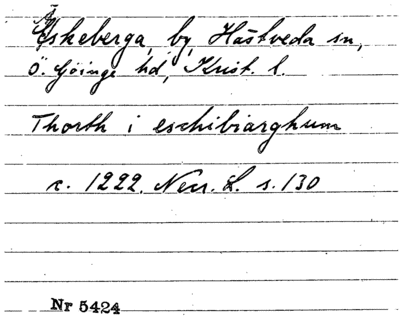 Eskeberga, by, Hästveda sn,
Ö. Göinge hd, Krist. l.
Thorth i eschibiarghum
c. 1222. Necr. L. s. 130
Nr 5424